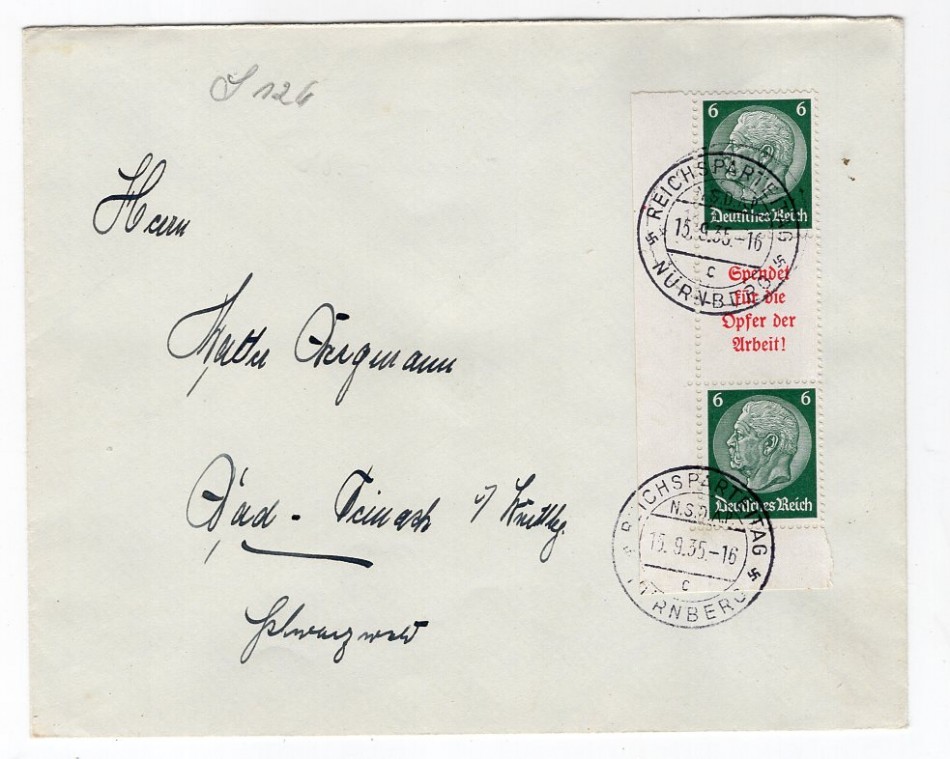 S 126
Herrn
Walter Bergmann
Bad - Teinach i/ Württbg.
Schwarzwald
6 6
Deutsches Reich
REICHSPARTEITAG
N.S.D.A.P.
15.9.35.-16
c
NÜRNBERG
Spendet
für die
Opfer der
Arbeit!
6 6
Deutsches Reich
REICHSPARTEITAG
N.S.D.A.P.
15.9.35-16
c
NÜRNBERG